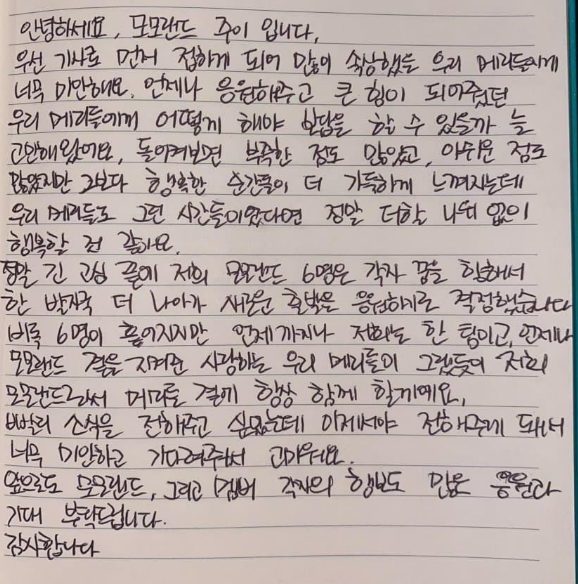 안녕하세요, 모모랜드 주이 입니다.
우선 기사로 먼저 접하게 되어 많이 속상했을 우리 메리들에게
너무 미안해요. 언제나 응원해주고 큰 힘이 되어줬던
우리 메리들에게 어떻게 해야 보답을 할 수 있을까 늘
고민해왔어요, 돌이켜보면 부족한 점도 많았고, 아쉬운 점도
많았지만 그보다 행복한 순간들이 더 가득하게 느껴지는데
우리 메리들도 그런 시간들이였다면 정말 더할 나위 없이
행복할 것 같아요.
정말 긴 고심 끝에 저희 모모랜드 6명은 각자 꿈을 향해서
한 발자국 더 나아가 새로운 출발을 응원하기로 결정했습니다
비록 6명이 흩어지지만 언제까지나 저희는 한 팀이고, 언제나
모모랜드 곁을 지켜준 사랑하는 우리 메리들이 그랬듯이 저희
모모랜드로써 메리들 곁에 항상 함께 할게예요.
빨리 소식을 전해주고 싶었는데 이제서야 전해주게 돼서
너무 미안하고 기다려주셔서 고마워요.
앞으로도 모모랜드, 그리고 멤버 각자의 행보도 많은 응원과
기대 부탁드립니다.
감사합니다